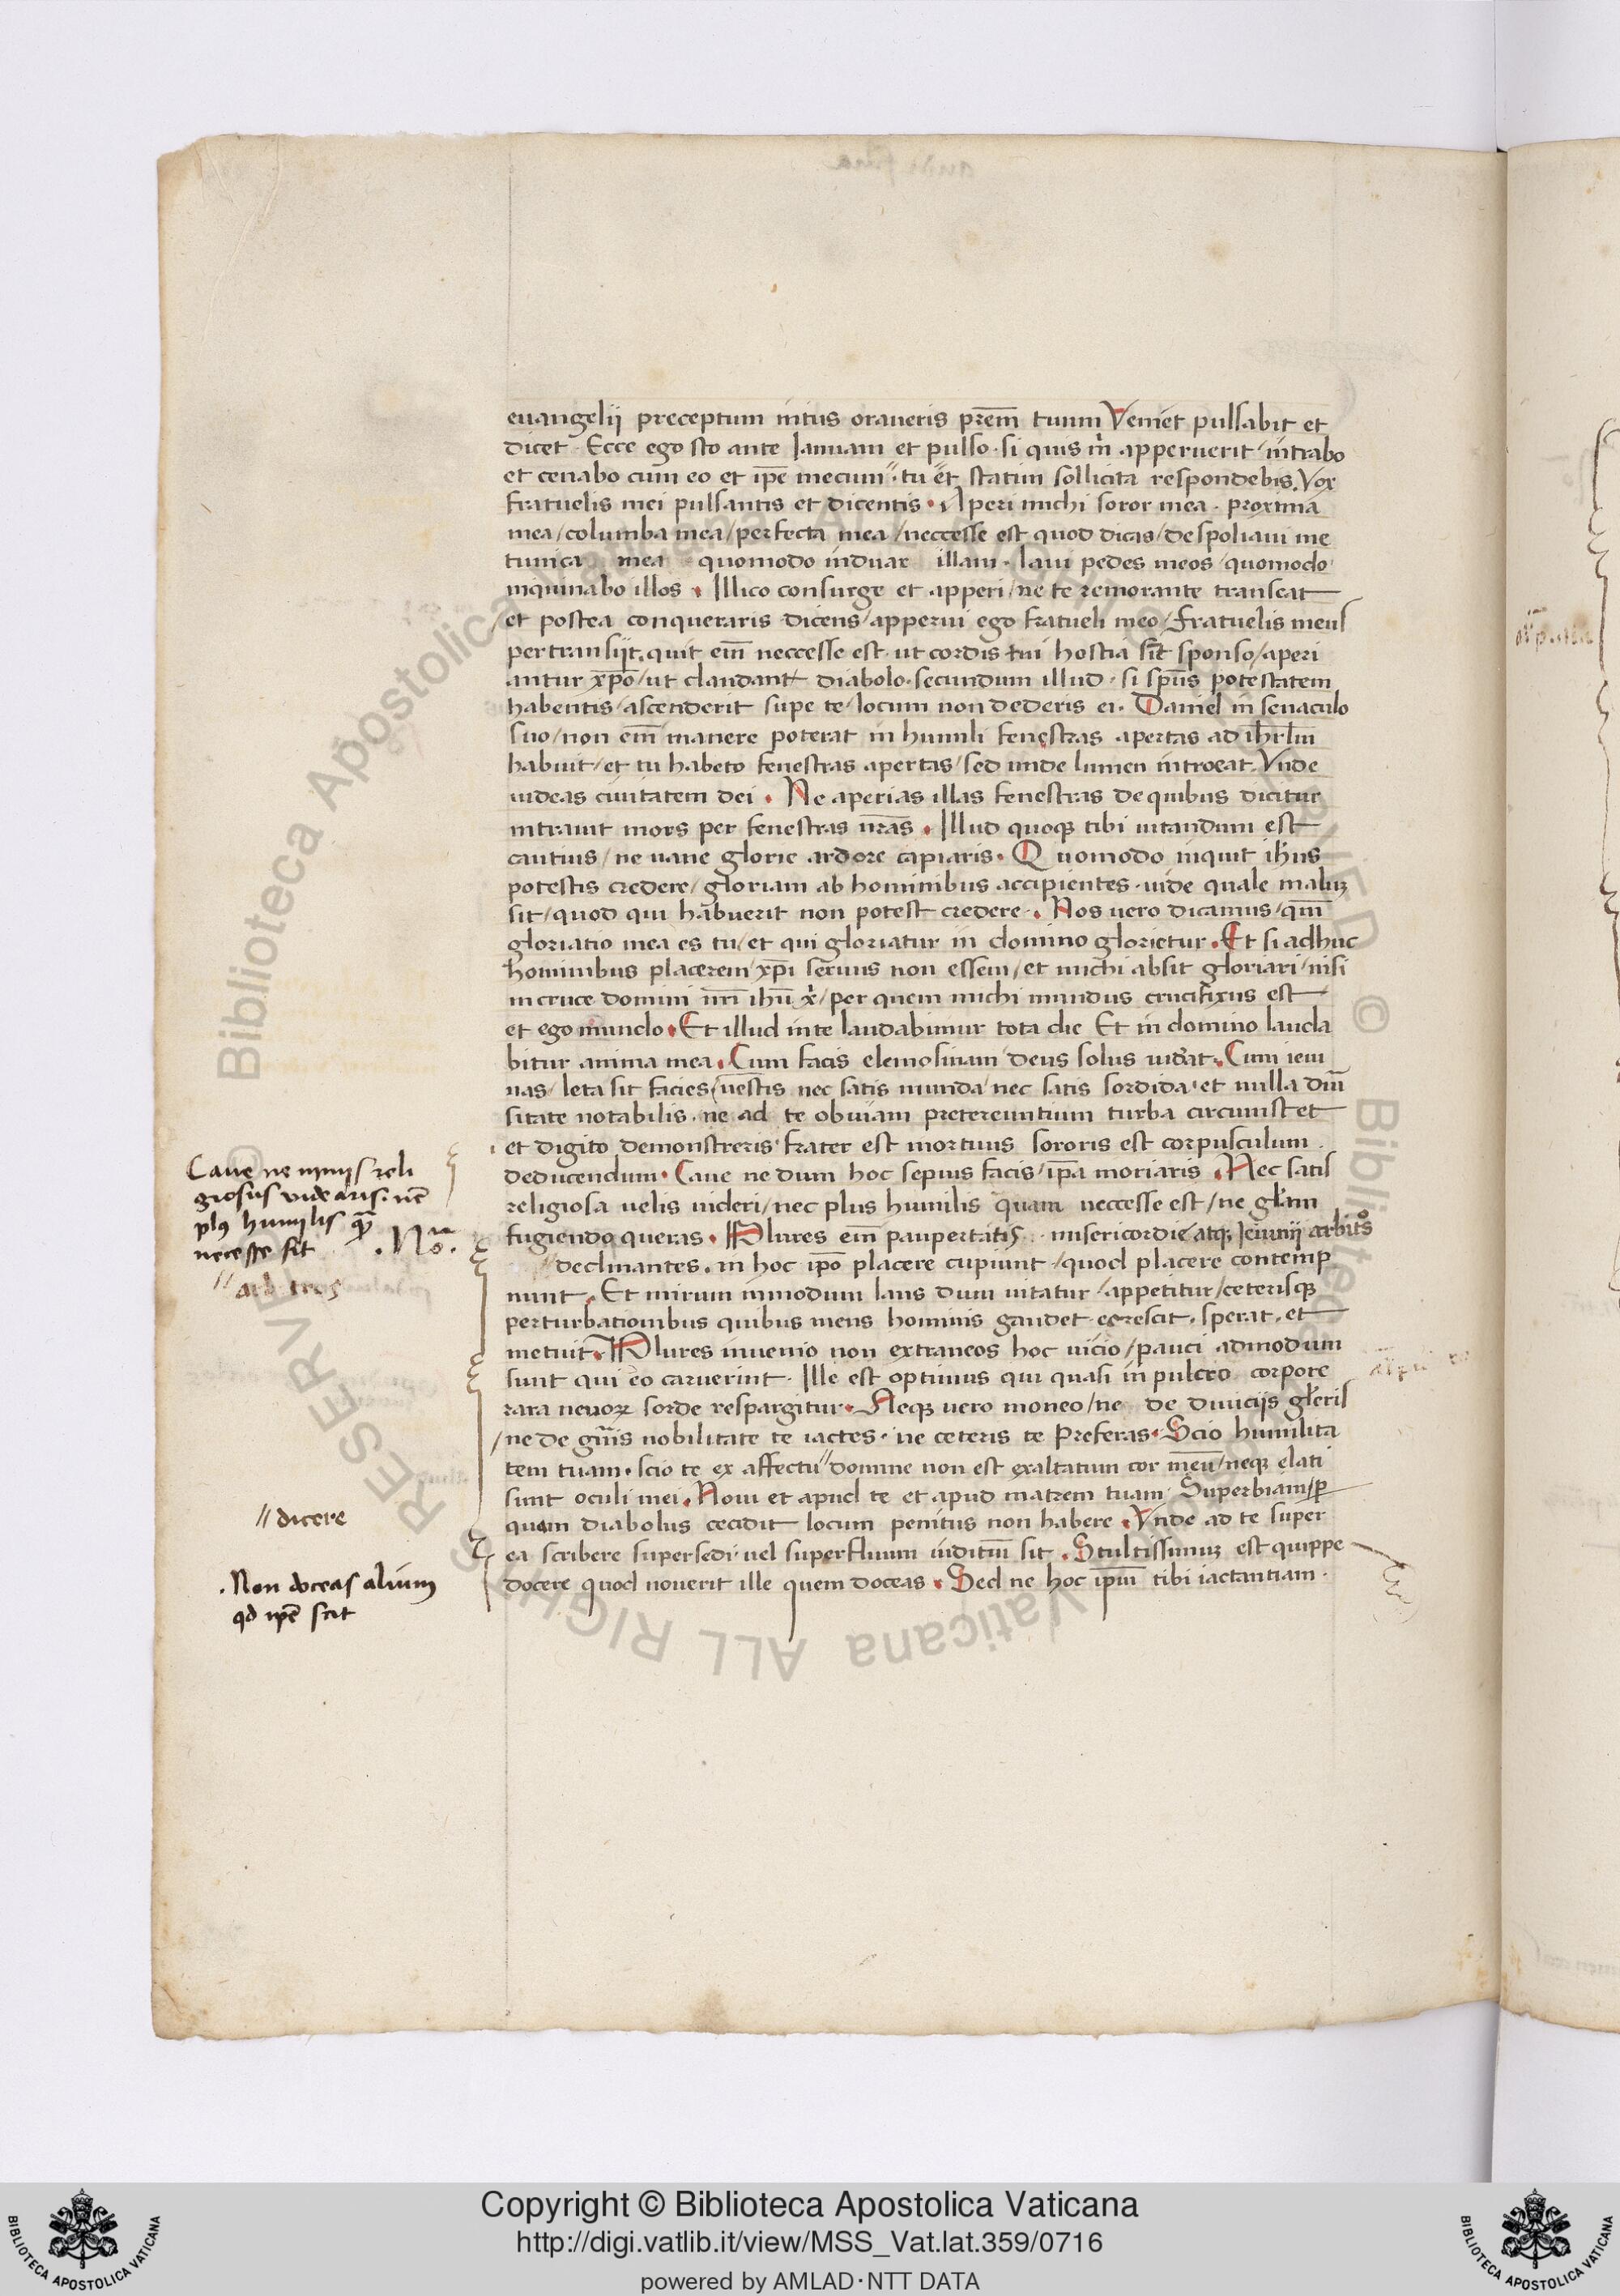 euangelij preceptum intus oraueris pr̄em tuum Veniet pulsabit et
dicet · Ecce ego sto ante Ianuam et pulso · si quis m̄ apperuerit / intrabo
et cenabo cum eo et ip̄e mecum · tu et statim sollicita respondebis. Vox
fratuelis mei pulsantis et dicentis · Aperi michi soror mea · proxima
mea / columba mea / perfecta mea / neccesse est quod dicas / despoliaui me
tunica mea quomodo induar illam · laui pedes meos / quomodo
inquinabo illos · Illico consurge et apperi / ne te remorante transeat
et postea conqueraris dicens / apperui ego fratueli meo / fratuelis meus
pertransijt. quit em̄ neccesse est · ut cordis tui hostia sīt sponso / aperi
antur xp̄o / ut claudant diabolo · secundum illud · si sp̄us potestatem
habentis / ascenderit supe te / locum non dederis ei · Daniel in senaculo
suo / non em̄ manere poterat in humili fenestras apertas ad ihrl̄m
habuit / et tu habeto fenestras apertas / sed unde lumen introeat. Vnde
uideas ciuitatem dei · Ne aperias illas fenestras de quibus dicitur
intrauit mors per fenestras nr̄as · Illud quoqꝫ tibi uitandum est
cautius / ne uane glorie ardore capiaris · Quomodo inquit ih̄us
potestis credere / gloriam ab hominibus accipientes · uide quale maluꝫ
sit / quod qui habuerit non potest credere · Nos uero dicamus / qm̄
gloriatio mea es tu / et qui gloriatur in domino glorietur · Et si adhuc
hominibus placerem / xp̄i seruus non essem / et michi absit gloriari / nisi
in cruce domini nr̄i ihū x̄ / per quem michi mundus crucifixus est
et ego mundo · Et illud in te laudabimur tota die Et in domino lauda
bitur anima mea · Cum facis elemosinam deus solus uideat · Cum ieiu
nas / leta sit facies / uestis nec satis munda / nec satis sordida · et nulla diū
sitate notabilis · ne ad te obuiam pretereuntium turba circumstet
et digito demonstreris · frater est mortuus sororis est corpusculum
deducendum · Caue ne dum hoc sepius facis / ip̄a moriaris · Nec satis
religiosa uelis uideri / nec plus humilis quam neccesse est / ne gl̄am
fugiendo queras · Plures em̄ paupertatis · misericordie atqꝫ Ieiunij arbitros
// declinantes · in hoc ip̄o placere cupiunt / quod placere contemp
nunt · Et mirum inmodum laus dum uitatur / appetitur / ceterisqꝫ
perturbationibus quibus mens hominis gaudet egrescit · sperat · et
metuit · Plures inuenio non extraneos hoc uicio / pauci admodum
sunt qui eo caruerint · Ille est optimus qui quasi in pulcro corpore
rara neuoꝝ sorde respargitur · Neqꝫ uero moneo / ne de diuicijs gl̄eris
/ ne de gn̄is nobilitate te iactes · ne ceteris te preferas · Scio humilita
tem tuam · scio te ex affectu // domine non est exaltatum cor meū / neqꝫ elati
sunt oculi mei · Noui et apud te et apud matrem tuam Superbiam / ꝑ
quam diabolus cecidit locum penitus non habere · Vnde ad te super
ea scribere supersedi · uel superfluum uiditm̄ sit · Stultissimuꝫ est quippe
docere quod nouerit ille quem doceas · Sed ne hoc ip̄m tibi iactantiam ·
Caue ne nimis reli
giosus videaris. nec̄
plꝰ humilis qͣ̄
necesse sit
. Nō.
// arbitros
// dicere
. Non doceas alium
qd ip̄e scit
© Biblioteca Apostolica Vaticana ALL RIGHTS RESERVED
Copyright © Biblioteca Apostolica Vaticana
http://digi.vatlib.it/view/MSS_Vat.lat.359/0716
powered by AMLAD·NTT DATA
BIBLIOTECA APOSTOLICA VATICANA
BIBLIOTECA APOSTOLICA VATICANA